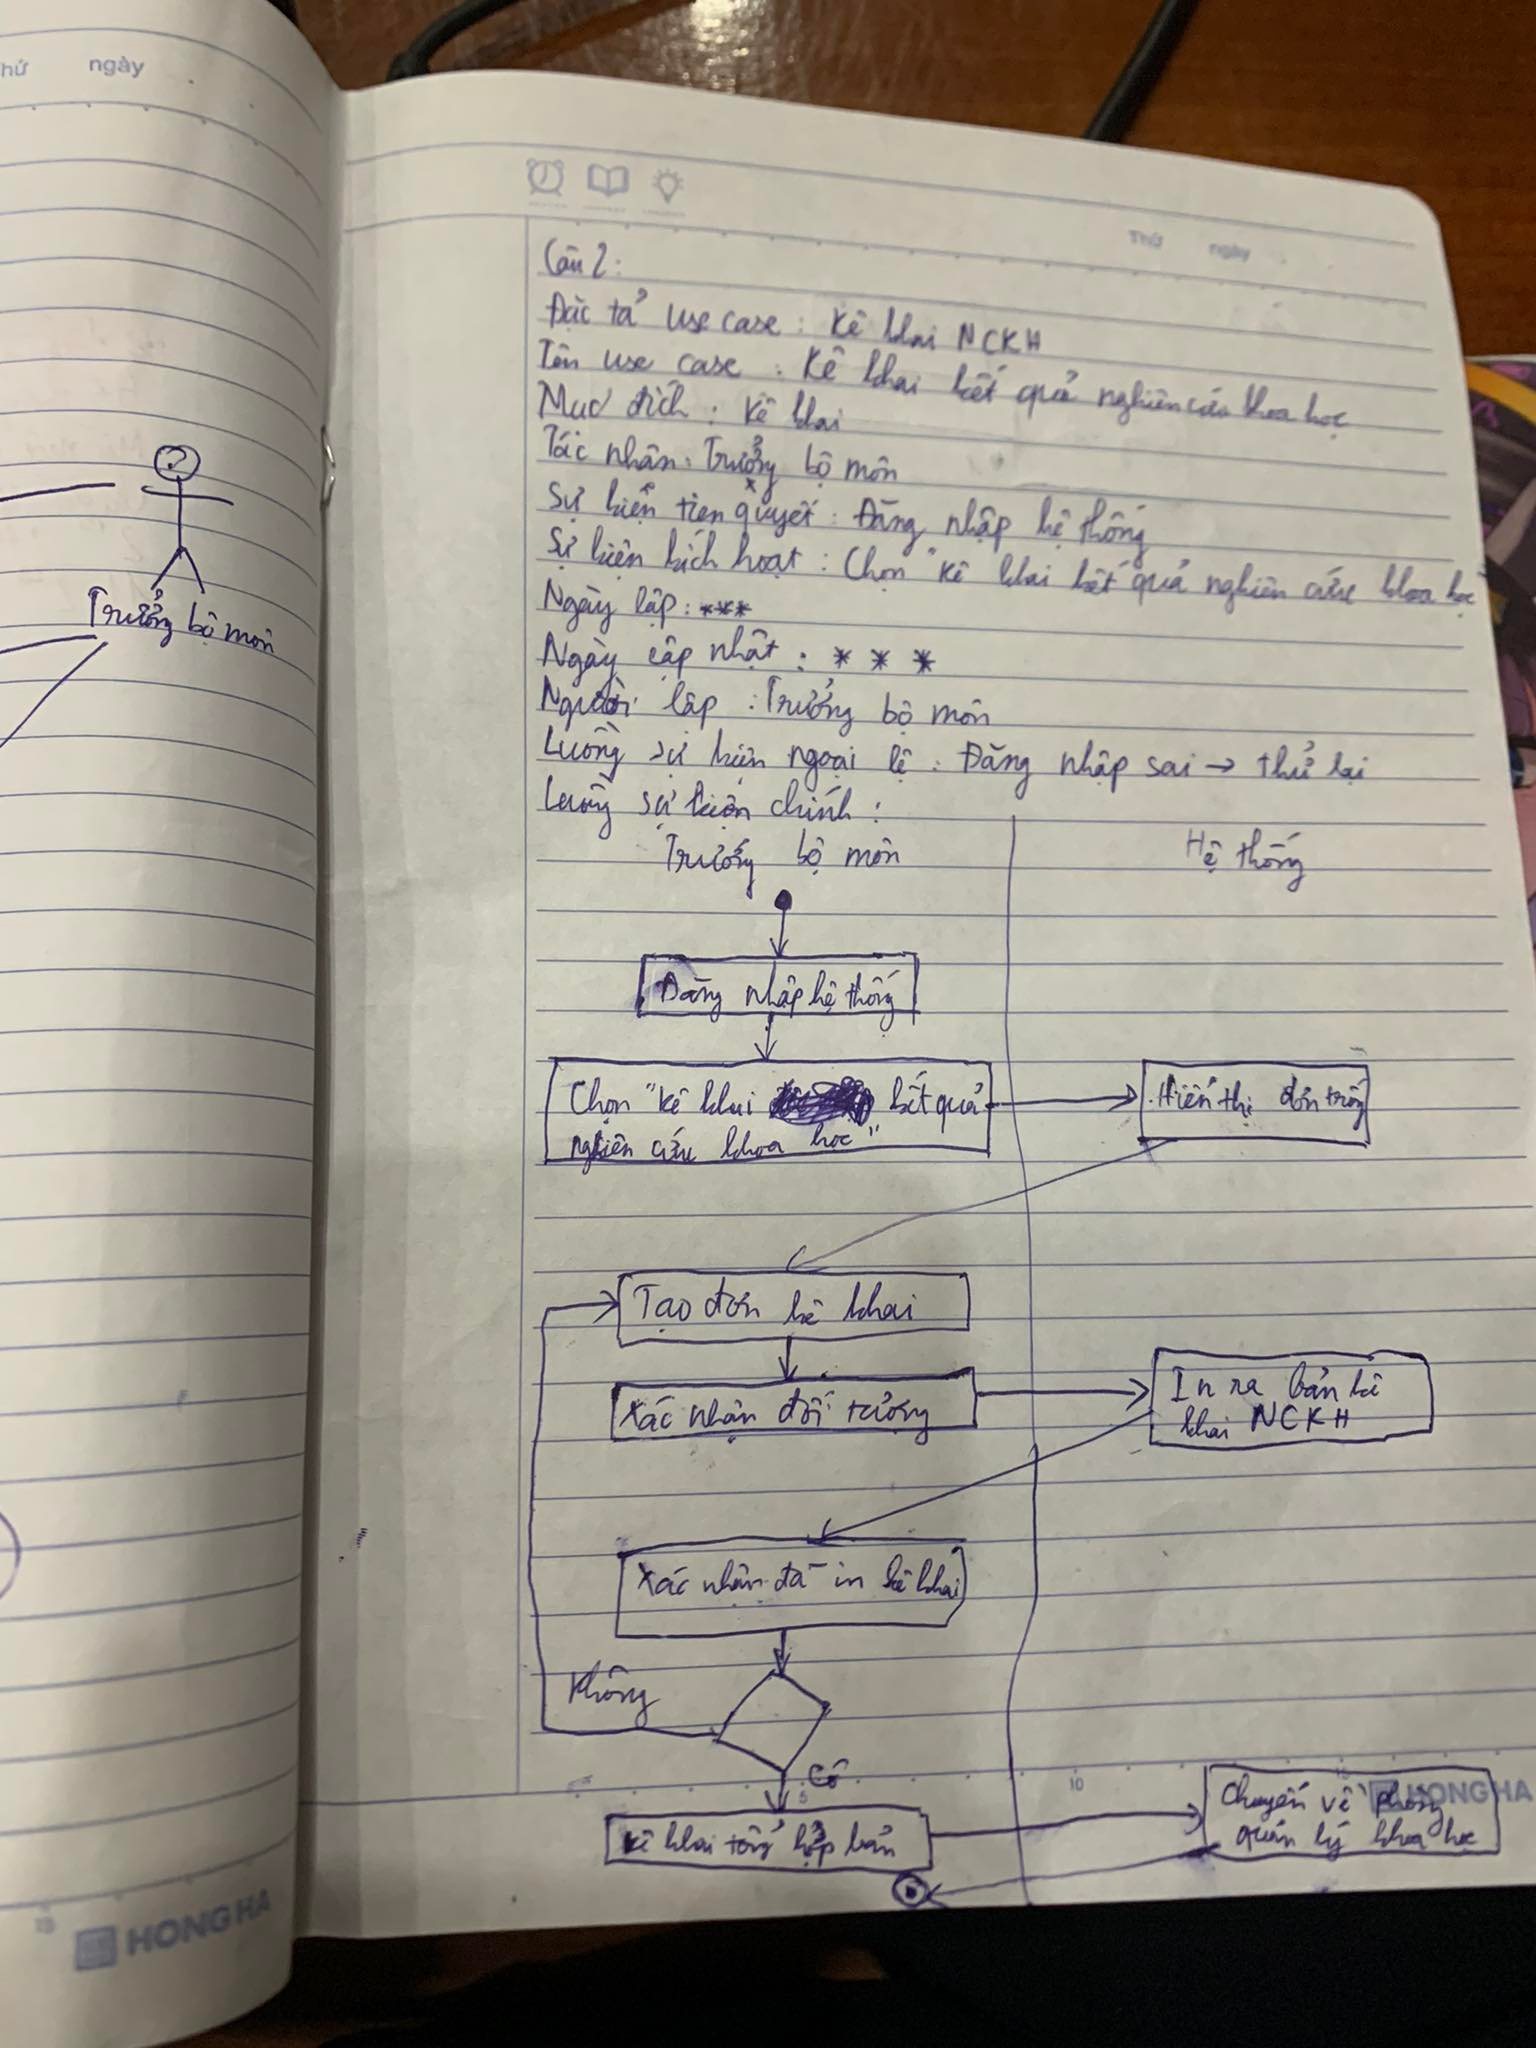 hứ ngày
Trưởng bộ môn
HONG HA
Thứ ngày
Câu 2:
Đặc tả use case : Kê khai NCKH
Tên use case : Kê khai kết quả nghiên cứu khoa học
Mục đích : Kê khai
Tác nhân : Trưởng bộ môn
Sự kiện tiên quyết : Đăng nhập hệ thống
Sự kiện kích hoạt : Chọn "kê khai kết quả nghiên cứu khoa học
Ngày lập : ***
Ngày cập nhật : * * *
Người lập : Trưởng bộ môn
Luồng sự kiện ngoại lệ : Đăng nhập sai → thử lại
Luồng sự kiện chính :
Trưởng bộ môn Hệ thống
Đăng nhập hệ thống
Chọn "kê khai kết quả
nghiên cứu khoa học"
Hiển thị đơn trống
Tạo đơn kê khai
Xác nhận đối tượng
In ra bản kê
khai NCKH
Xác nhận đã in kê khai
Không
Có
5 10 15
HONG HA
kê khai tổng hợp bản
Chuyển về phòng
quản lý khoa học